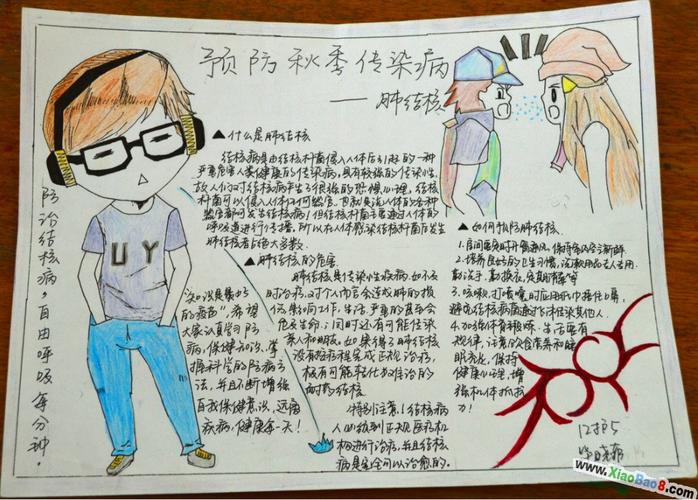 预防秋季传染病
——肺结核
▲什么是肺结核
结核病是由结核杆菌侵入人体后引起的一种
严重危害人类健康的传染病,具有较强的传染性,
故人们对结核病产生了很强的恐惧心理。结核
杆菌可以侵入人体任何器官,也就是说人体的各种
器官都可发生结核病!但结核杆菌主要通过人体的
呼吸道进行传播,所以在人体感染结核杆菌后发生
肺结核者占绝大多数。
▲肺结核的危害
肺结核是传染性疾病,如不及
时治疗,对个人而言会造成肺的损
伤,影响工作、生活,严重的甚至会
危及生命;同时还有可能传染
家人和朋友。如果得了肺结核
没有按疗程完成正规治疗,
极有可能转化为难治的
耐药结核
特别注意:结核病
人必须到正规医疗机
构进行治疗,并且结核
病是完全可以治愈的。
▲如何预防肺结核
1.房间要定时开窗通风,保持室内空气新鲜
2.培养良好的卫生习惯,洗漱用品专人专用
勤洗手、勤换衣、定期消毒等
3.咳嗽、打喷嚏时应用手巾捂住口鼻,
避免结核病菌通过飞沫传染其他人。
4.加强体育锻炼。生活要有
规律,注意饮食营养和睡
眠充足,保持
健康心理,增
强机体抵抗
力!
防治结核病,自由呼吸每分钟。
"知识是最好
的疫苗",希望
大家认真学习防
病、保健知识、掌
握科学的防病方
法,并且不断增强
自我保健意识,远离
疾病,健康每一天!
UY
12护5
www.XiaoBao8.com